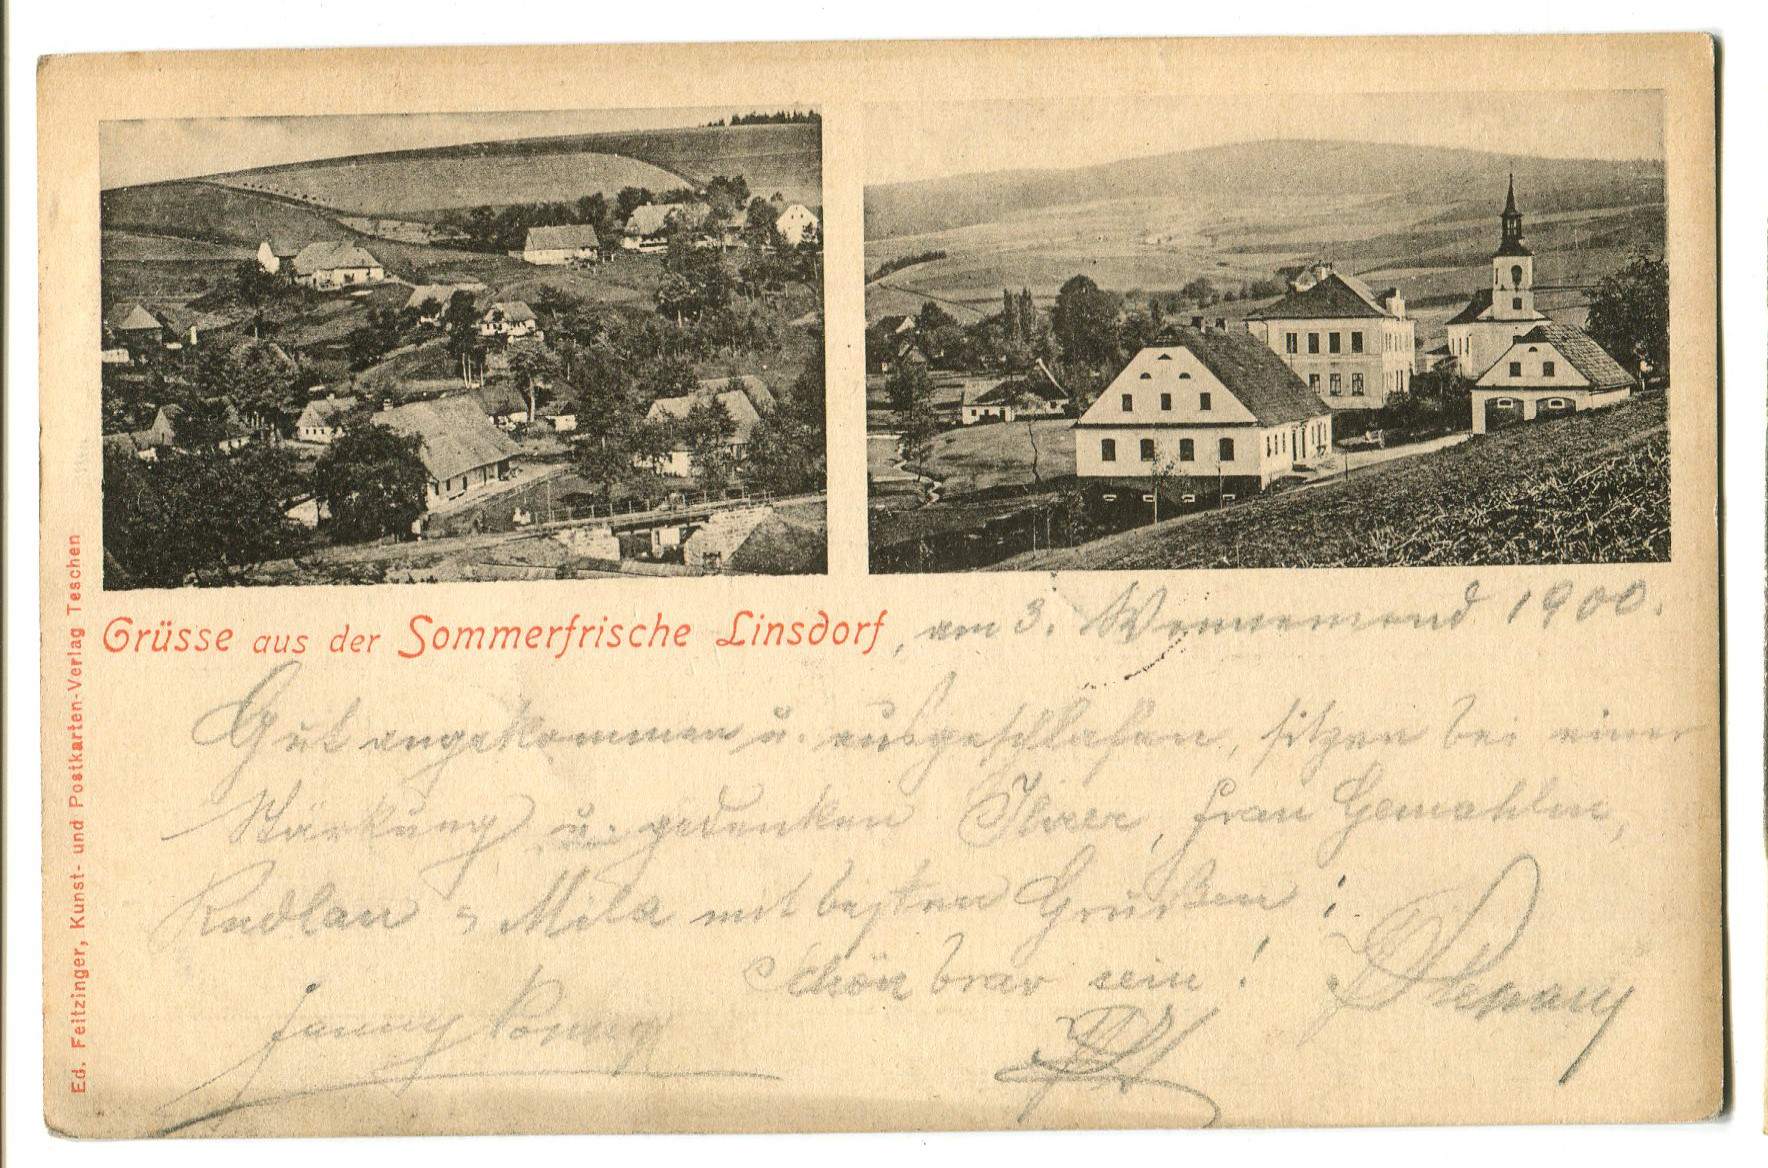 Grüsse aus der Sommerfrische Linsdorf, am 3. Wonnemond 1900.
Gut angekommen u. ausgeschlafen, sitzen bei einer
Stärkung u. gedenken Ihrer, Frau Gemahlin,
Mila mit besten Grüßen!
Schön brav sein!
Fanny
Ed. Feitzinger, Kunst- und Postkarten-Verlag Teschen